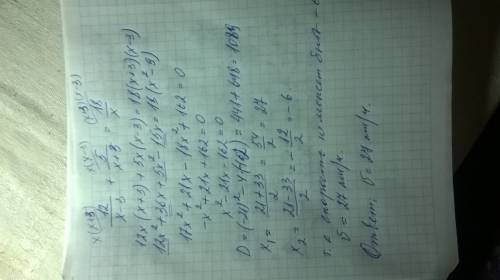 x(x+3) x(x-3) (x+3)(x-3)
12/(x-3) + 5/(x+3) = 18/x
12x(x+3)+5x(x-3)=18(x+3)(x-3)
12x²+36x+5x²-15x=18(x²-9)
17x²+21x-18x²+162=0
-x²+21x+162=0
x²-21x-162=0
D=(-21)²-4·(-162)=441+648=1089
x₁=(21+33)/2=54/2=27
x₂=(21-33)/2=-12/2=-6
т.к скорость не может быть -
v=27 км/ч.
Ответ: v=27 км/ч.